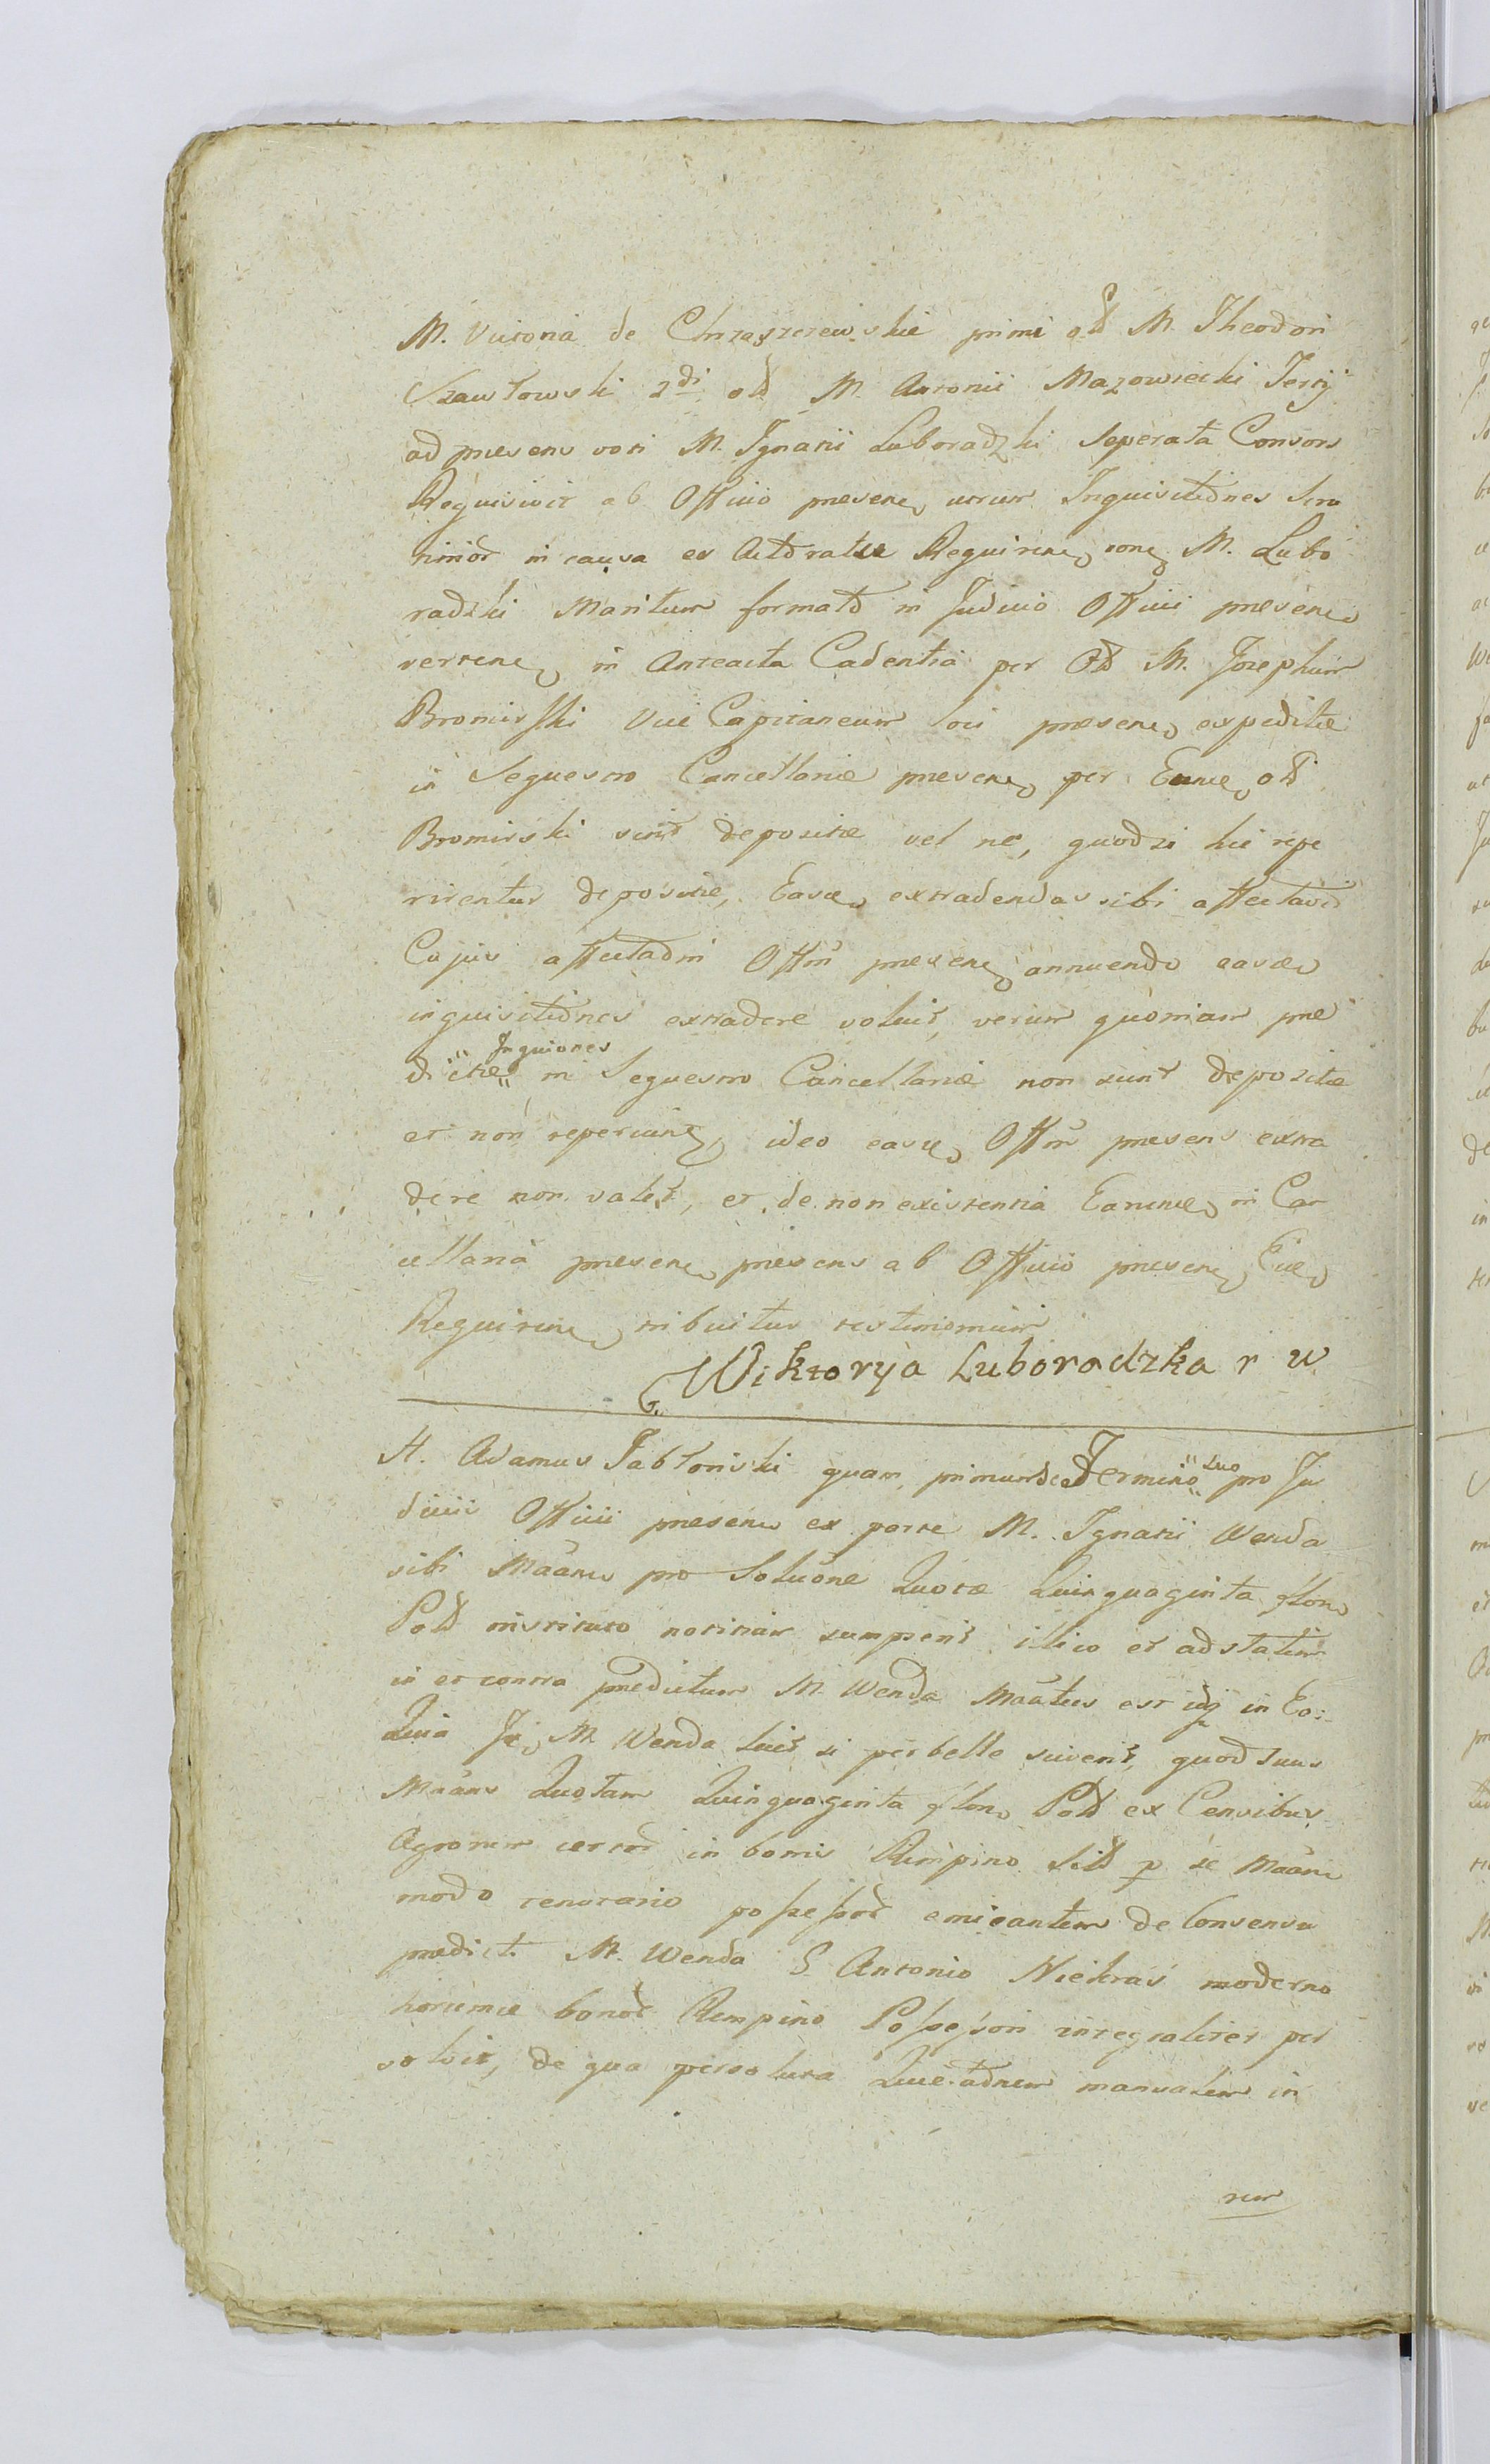 M. Victoria de Chrząszczewskie primi old M. Theodori
Szawłowski 2di old M. Antonii Mazowiecki Tertij
ad presens vori M. Ignatii Luboradzki seperata Consors
Requisivit ab Officio presenc, utrum Inquisitiones Scru
tinior in causa ex Actoratu Requirenc, conc, M. Lubo
radzki Maritum format in Judicio Officii presenc,
vertenc, in Anteacta Cadentia per Old M. Josephum
Bromirski Vice Capitaneum loci presenc, expeditæ
in Sequestro Cancellariæ presenc, per Eunce, old
Bromirski sint depositæ vel ne, quod si hic repe
rirentur depositæ, Easce, extradendas sibi affectavit
Cujus affectatni Offm presenc, annuendo easce,
inquisitiones extradere voluit, verum quoniam præ
dictæ Inquiones in Sequestro Cancellariæ non sunt depositæ
et non reperiunt, ideo easce, Offm presens extra
dere non valet, et de non existentia Earumce, in Can
cellaria presenc, presens ab Officio presenc, Eice,
Requirenc, tribuitur testimonium
Wiktoryja Luboradzka r w
H. Adamus Jabłoński quam primum de Termino Suo pro Ju
dicii Officii presenc, ex parte M. Ignatii Wenda
sibi Maanc, pro Soluone Quotæ Quinquaginta floren,
Pold instituto notitiam sumpsit illico et adstatim
in et contra prædictum M. Wenda Maatus est idq in Eo:
Quia Ic, M. Wenda licet si perbelle sciverit, quod Suus
Maans Quotam Quinquaginta floren, Pold ex Censibus
Agrorum certor in bonis Rempino sitd p se Maanc,
modo tenutario possessor emicantem de Consensu
prædict. M. Wenda G. Antonio Niekraś moderno
horumce bonor Rempino Possessori integraliter per
solvit, de qua persoluta Quietatnem manualem in
rem